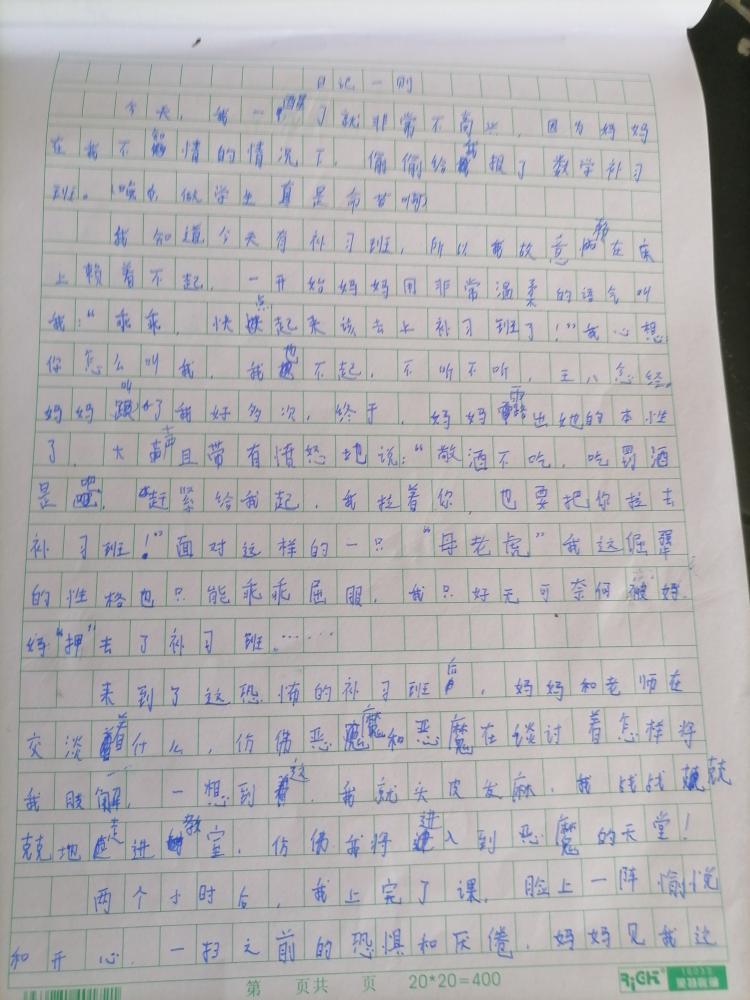 日记一则
今天，我一醒了就非常不高兴，因为妈妈
在我不知情的情况下，偷偷给我报了数学补习
班。唉，做学生真是命苦啊
我知道今天有补习班，所以我故意躺在床
上赖着不起，一开始妈妈用非常温柔的语气叫
我："乖乖，快点起来该去上补习班了！"我心想
你怎么叫我，我也不起，不听不听，王八念经。
妈妈叫了我好多次，终于，妈妈露出她的本性
了，大声且带有愤怒地说："敬酒不吃，吃罚酒
是吧，赶紧给我起，我拉着你，也要把你拉去
补习班！"面对这样的一只"母老虎"我这倔犟
的性格也只能乖乖屈服，我只好无可奈何被妈
妈"押"去了补习班……
来到了这恐怖的补习班后，妈妈和老师在
交谈着什么，仿佛恶魔和恶魔在谈讨着怎样将
我肢解，一想到这，我就头皮发麻，我战战兢兢
兢地走进教室，仿佛我将进入到恶魔的天堂！
两个小时后，我上完了课，脸上一阵愉悦
和开心，一扫之前的恐惧和厌倦，妈妈见我这
第 页共 页 20*20=400
RiGH